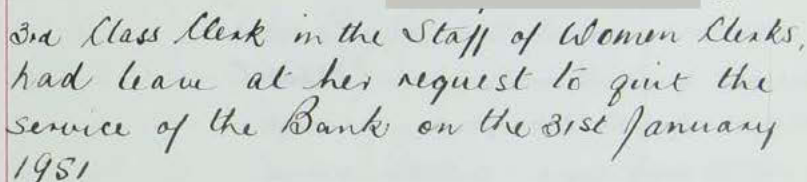 3rd Class Clerk in the Staff of Women Clerks,
had leave at her request to quit the
service of the Bank on the 31st January
1951